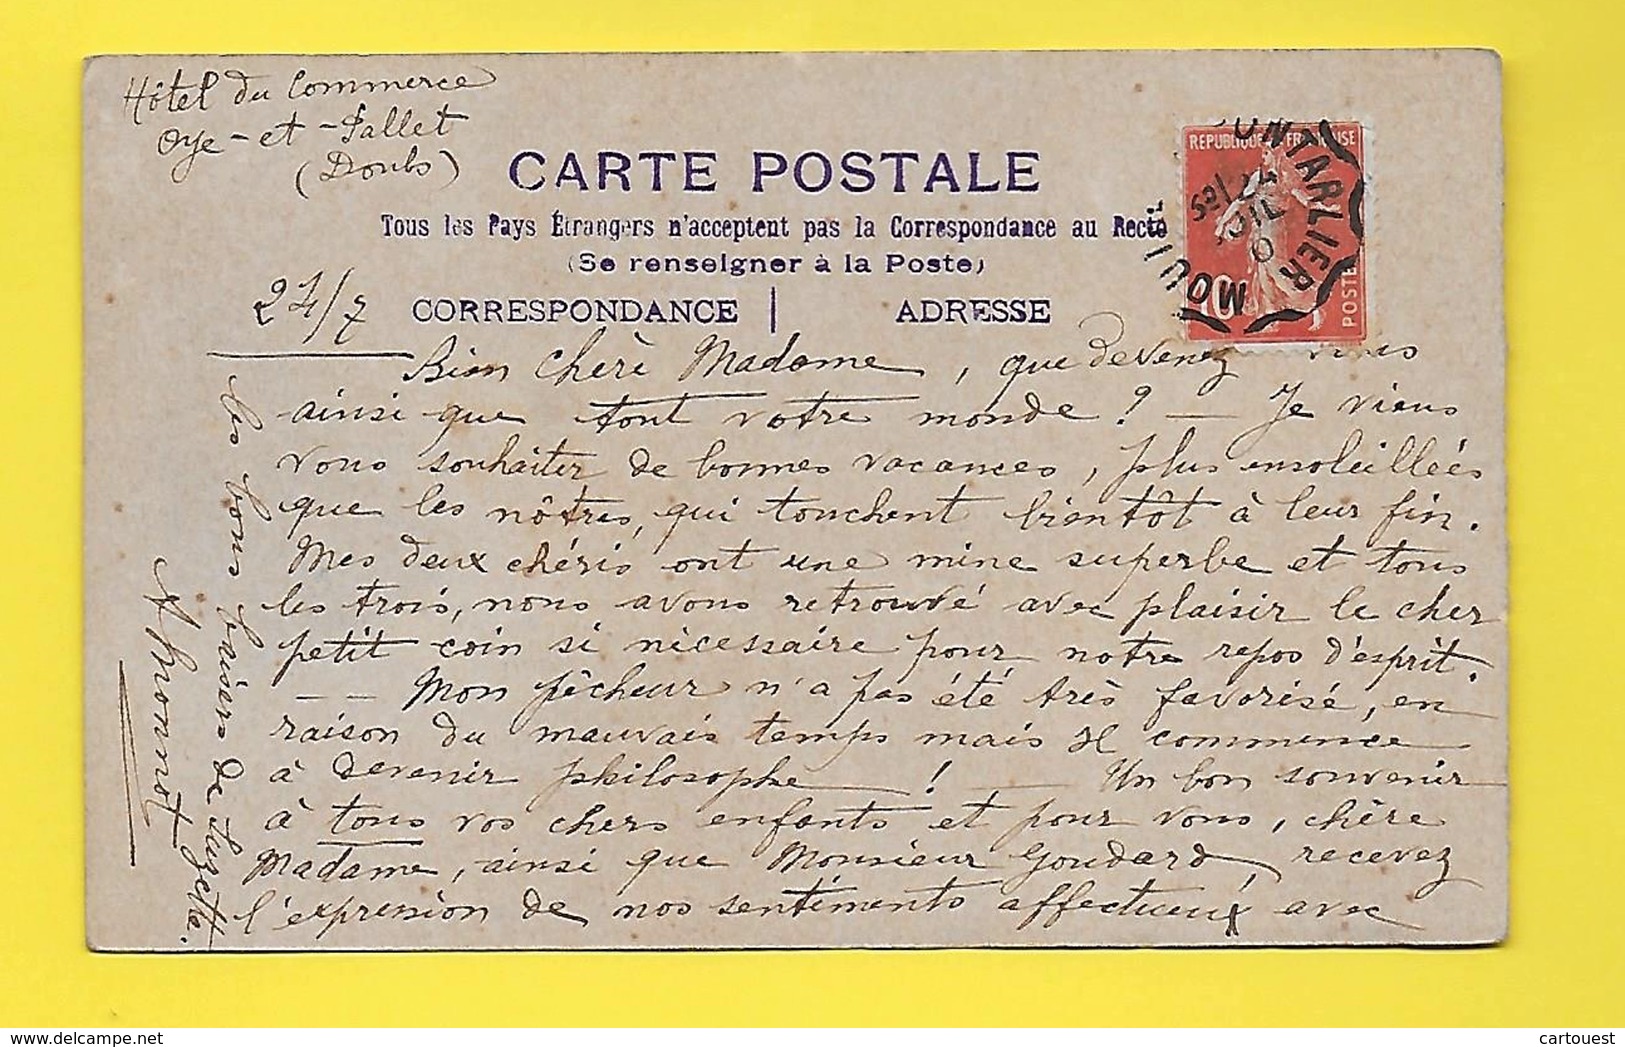 Hôtel du Commerce
Oye-et-Pallet
(Doubs)
CARTE POSTALE
Tous les Pays Étrangers n'acceptent pas la Correspondance au Recto
(Se renseigner à la Poste)
RÉPUBLIQUE FRANÇAISE
10
POSTES
ONTARLIER
MOU
24
JUIL
24/7
CORRESPONDANCE | ADRESSE
Bien chère Madame, que devenez vous
ainsi que tout votre monde ? — Je viens
vous souhaiter de bonnes vacances, plus ensoleillées
que les nôtres, qui touchent bientôt à leur fin.
Mes deux chéris ont une mine superbe et tous
les trois, nous avons retrouvé avec plaisir le cher
petit coin si nécessaire pour notre repos d'esprit.
— — Mon pêcheur n'a pas été très favorisé, en
raison du mauvais temps mais il commence
à devenir philosophe ! — Un bon souvenir
à tous vos chers enfants et pour vous, chère
Madame, ainsi que Monsieur Goudard, recevez
l'expression de nos sentiments affectueux avec
les bons baisers de Suzette.
cartouest